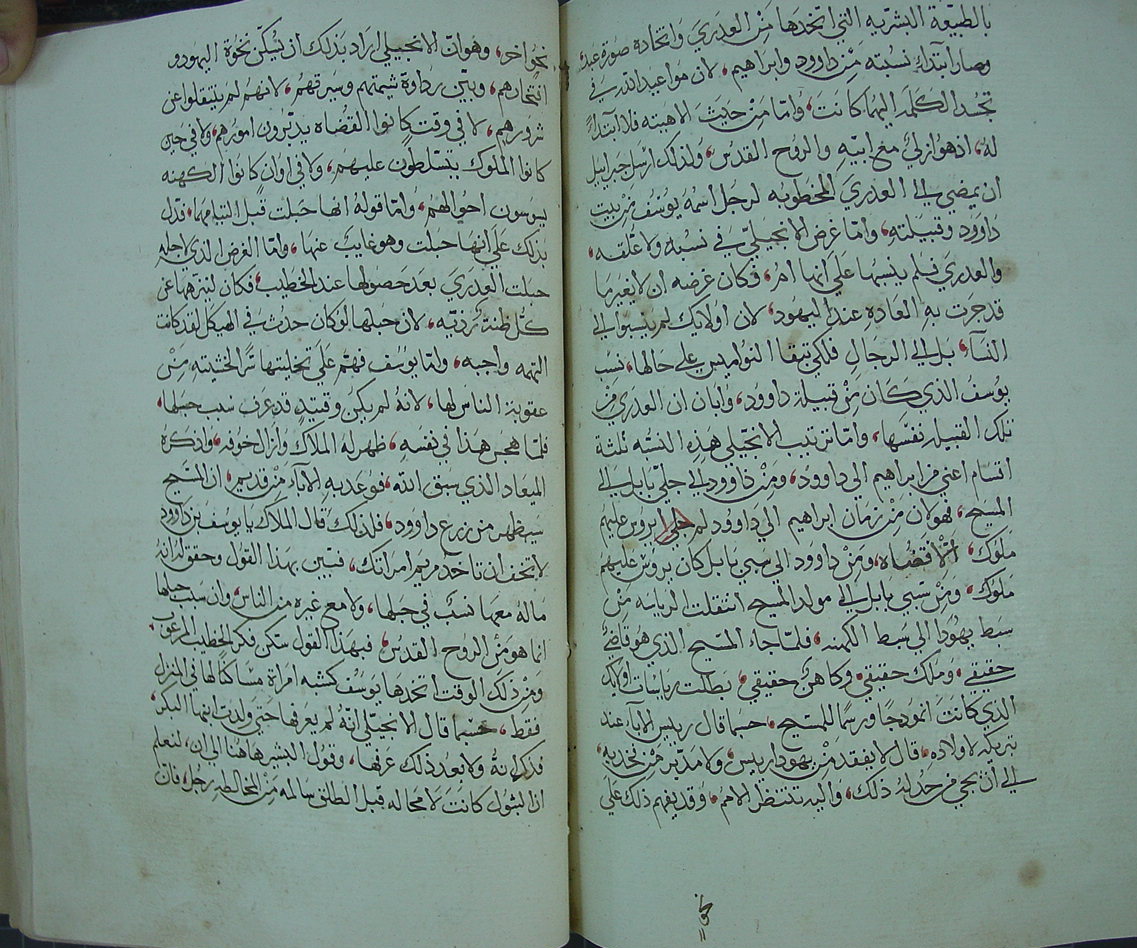 بالطبيعة البشريه التي اتخدها من العدري واتخاده صورة عبد
وصار ابتدا نسبته من داوود وابراهيم، لان مواعيد الله في
تجسد الكلمه اليهما كانت، واما من حيث الاهيته فلا ابتدا
له، اذ هو ازلي مع ابيه والروح القدس، ولذلك ارسل جبراييل
ان يمضي الى العدري المخطوبه لرجل اسمه يوسف من بيت
داوود وقبيلته، واما غرض الانجيلي في نسبه ولاعلقه،
والعدري فلم ينسبها على انها امر، فكان غرضه ان لا يغير ما
قد جرت به العاده عند اليهود، لان اولايك لم ينسبوا الى
النسآ، بل الى الرجال فلكي تبقا النواميس على حالها، نسب
يوسف الذي كان من قبيلة داوود، وابان ان العدري من
تلك القبيله نفسها، واما ترتيب الانجيلي هذه النسبه ثلثة
اقسام اعني من ابراهيم الى داوود، ومن داوود الى جلي بابل الى
المسيح، فهو لان من زمان ابراهيم الى داوود لم يروس عليهم
ملوك، الا قضاه، ومن داوود الى سبي بابل كان يروس عليهم
ملوك، ومن سبي بابل الى مولد المسيح انتقلت الرياسه من
سبط يهودا الى سبط الكهنه، فلما جاء المسيح الذي هو قاضي
حقيقي، وملك حقيقي، وكاهن حقيقي، بطلت رياسات اولايك
الذي كانت انموذجا ورسما للمسيح، حسبما قال رييس الابآء عند
تبريكه لاولاده، قال لا يفقد من يهودا رييس، ولا مدبر من فخديه،
الى ان يجي من حد له ذلك، واليه تنتظر الامم، وقد يفهم ذلك على
نحو اخر، وهو ان الانجيلي اراد بذلك ان يسكن نخوة اليهود و
افتخارهم، وتبين رداوة شيمتهم وسيرتهم، لانهم لم ينتقلوا عن
شرورهم، لا في وقت كانوا القضاه يدبرون امورهم، ولا في حين
كانوا الملوك يتسلطون عليهم، ولا في اوان كانوا الكهنه
يسوسون احوالهم، واما قوله انها حبلت قبل التيامهما، فدل
بذلك على انها حبلت وهو غايب عنها، واما الغرض الذي اجله
حبلت العدري بعد حصولها عند الخطيب، فكان لينزهها عن
كل ظنة رديه، لان حبلها لو كان حدث في الهيكل لقد كانت
التهمه واجبه، واما يوسف فهم على تخليتها سرا لخشيته من
عقوبة الناس لها، لانه لم يكن وقتيد قد عرف سبب حبلها،
فلما هجس هذا في نفسه، ظهر له الملاك وازال خوفه، واذكره
الميعاد الذي سبق الله، فوعد به الابآء من قديم، ان المسيح
سيظهر من زرع داوود، فلذلك قال الملاك يا يوسف بن داوود
لا تخف ان تاخد مريم امراتك، فتبين بهذا القول وحقق له انه
ما له معها نسب في حبلها، ولا مع غيره من الناس، وان سبب حبلها
انما هو من الروح القدس، فبهذا القول سكن فكر الخطيب المرعوب،
ومن ذلك الوقت اتخدها يوسف كشبه امراة مساكنا لها في المنزل
فقط، حسبما قال الانجيلي انه لم يعرفها حتى ولدت ابنها البكر،
فدكر انه ولا بعد ذلك عرفها، وقول البشير هاهنا الى ان، لنعلم
ان البتول كانت لا محاله قبل الطلق سالمه من مخالطة رجل، فان